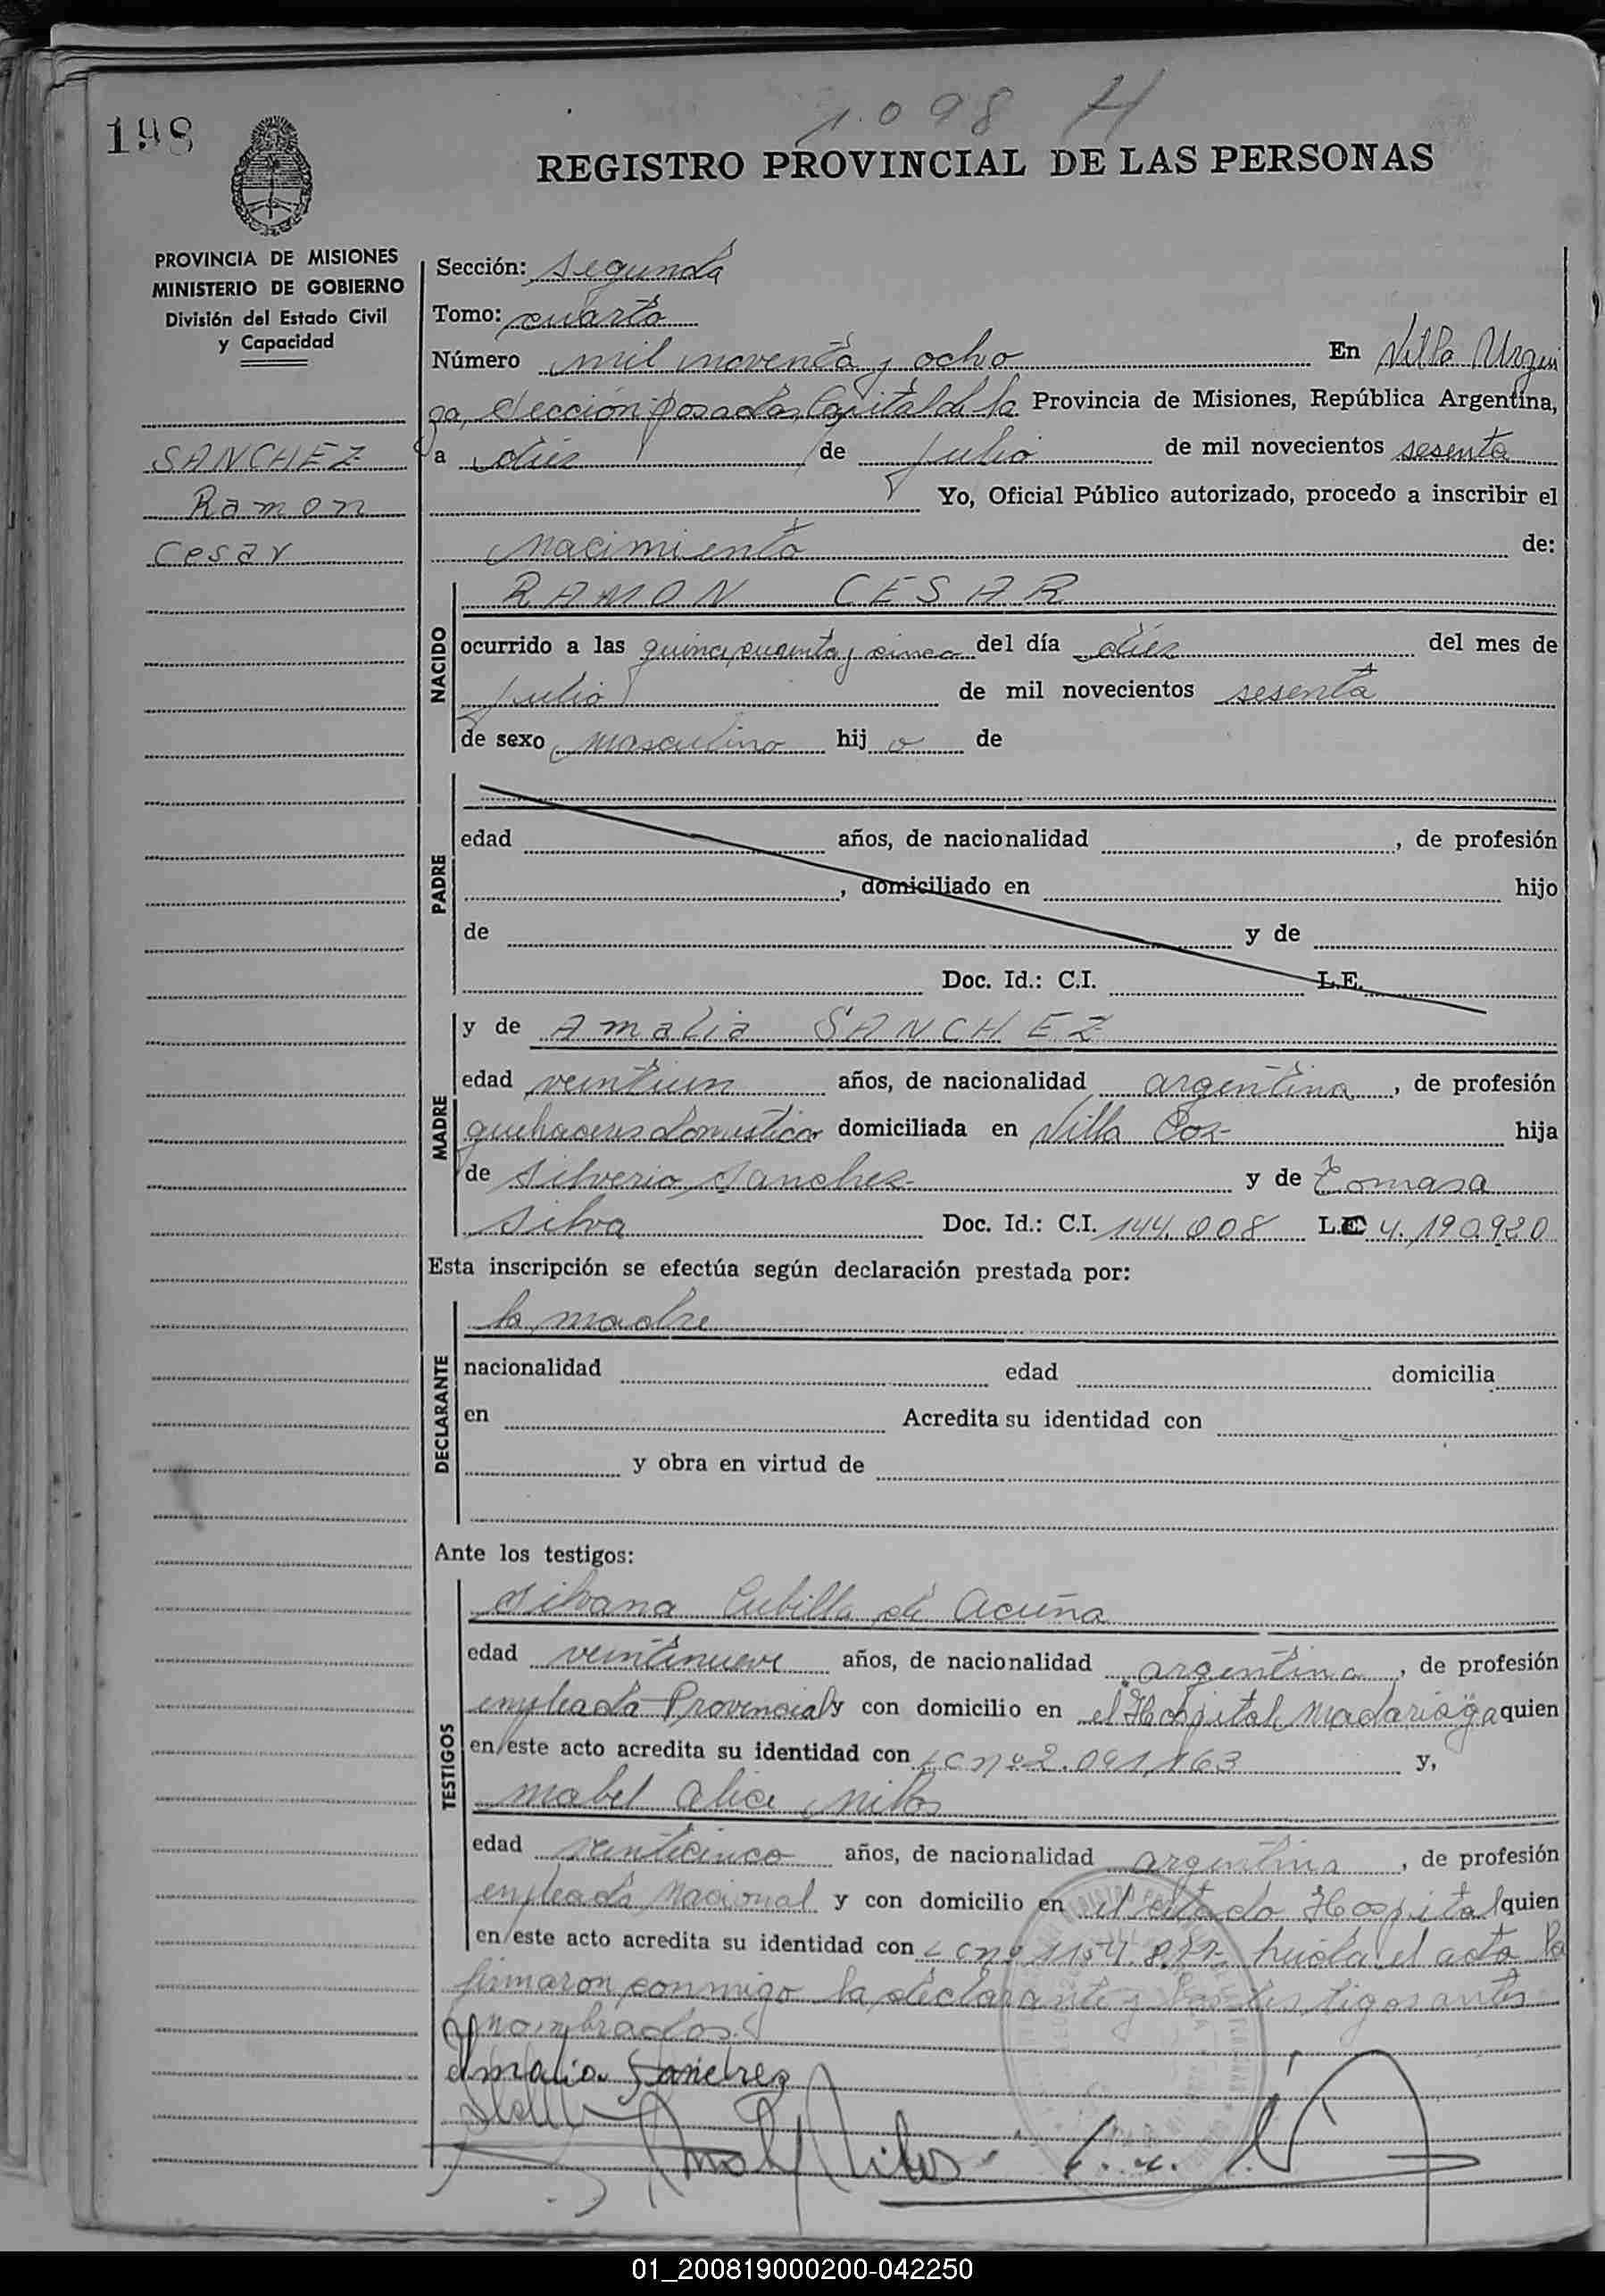 1098 H
198
REGISTRO PROVINCIAL DE LAS PERSONAS
PROVINCIA DE MISIONES
MINISTERIO DE GOBIERNO
División del Estado Civil
y Capacidad
SANCHEZ
Ramon
Cesar
Sección: segunda
Tomo: cuarto
Número mil noventa y ocho En Villa Urqui
za, Sección Posadas, Capital de la Provincia de Misiones, República Argentina,
a diez de julio de mil novecientos sesenta
Yo, Oficial Público autorizado, procedo a inscribir el
nacimiento de:
NACIDO
RAMON CESAR
ocurrido a las quince, cuarenta y cinco del día diez del mes de
julio de mil novecientos sesenta
de sexo masculino hij o de
PADRE
edad años, de nacionalidad , de profesión
, domiciliado en hijo
de y de
Doc. Id.: C.I. L.E.
MADRE
y de Amalia SANCHEZ
edad veintiun años, de nacionalidad argentina, de profesión
quehaceres domesticos domiciliada en Villa hija
de Silverio Sanchez y de Tomasa
Silva Doc. Id.: C.I. 144.008 L.C 4.190.920
Esta inscripción se efectúa según declaración prestada por:
DECLARANTE
la madre
nacionalidad edad domicilia
en Acredita su identidad con
y obra en virtud de
Ante los testigos:
TESTIGOS
Silvana Cubilla de Acuña
edad veintinueve años, de nacionalidad argentina, de profesión
empleada Provincial y con domicilio en el Hospital Madariaga quien
en este acto acredita su identidad con LC nº 2.091.163 y,
Mabel Alice Miltos
edad veinticinco años, de nacionalidad argentina, de profesión
empleada Nacional y con domicilio en el citado Hospital quien
en este acto acredita su identidad con LC nº leida el acta la
firmaron conmigo la declarante y los testigos antes
nombrados.
Amalia Sanchez
01_200819000200-042250